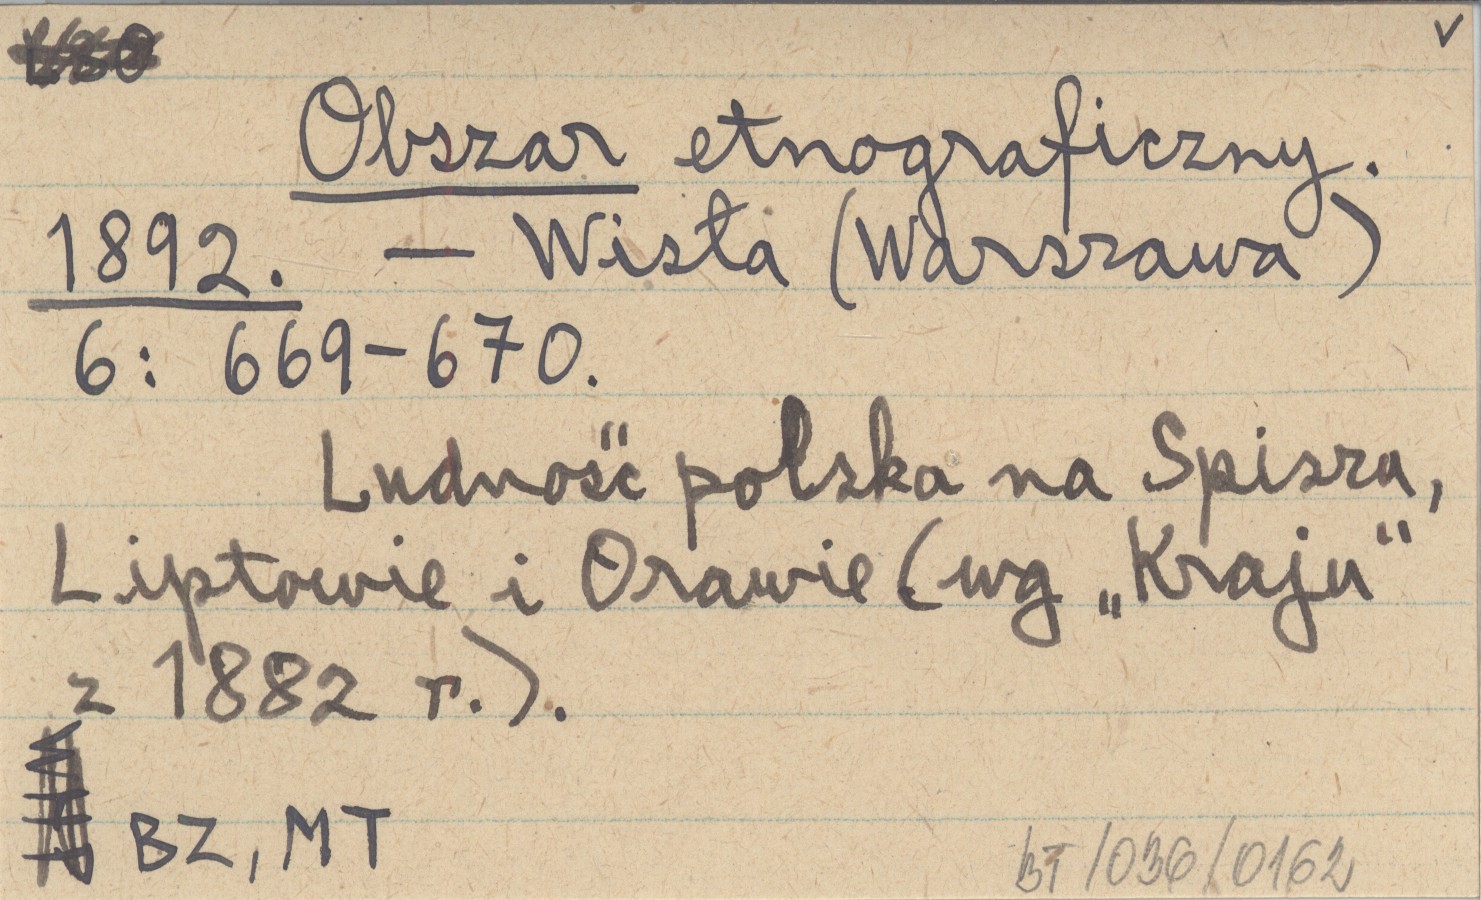 v
Obszar etnograficzny.
1892. — Wisła (Warszawa)
6: 669-670.
Ludność polska na Spiszu,
Liptowie i Orawie (wg „Kraju"
z 1882 r.).
BZ, MT
BT/036/0162